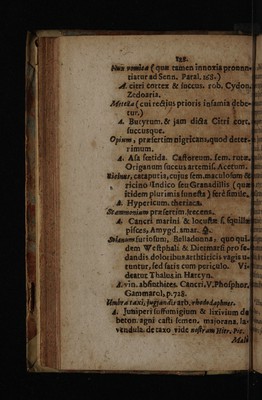 128.
Nux vomica (quæ tamen innoxia pronun-
tiatur ad Senn. Paral. 168.)
A. citri cortex & succus. rob. Cydon.
Zedoaria.
(cui rectius prioris infamia debe-
tur.)
A. Butyrum. & jam dicta Citri cort.
succusque.
Opium, præsertim nigricans, quod deter-
rimum.
A. Asa fœtida. Castoreum. sem. rutæ.
Origanum succus artemis. Acetum.
Ricinus, cataputia, cujus sem. maculosum &
ricino Indico seu Granadillis (quæ
itidem plurimis funesta) ferè simile.
A. Hypericum. theriaca.
Scammonium præsertim recens.
A. Cancri marini & locustæ s. squillæ
pisces, Amygd. amar.
Solanum furiosum, Belladonna, quo qui-
dem Westphali & Dietmarsi pro se-
dandis doloribus arthriticis vagis u-
tuntur, sed satis cum periculo. Vi-
deatur Thalea in Harcyn.
A. vin. absinthites. Cancri. V. Phosphor.
Gammarol, p. 728.
Umbra taxi, juglandis arb. rhododaphnes.
A. Juniperi suffumigium & lixivium de
beton. agni casti semen. majorana. la-
vendula. de taxo vide nostram Hier. Pic.
Malè